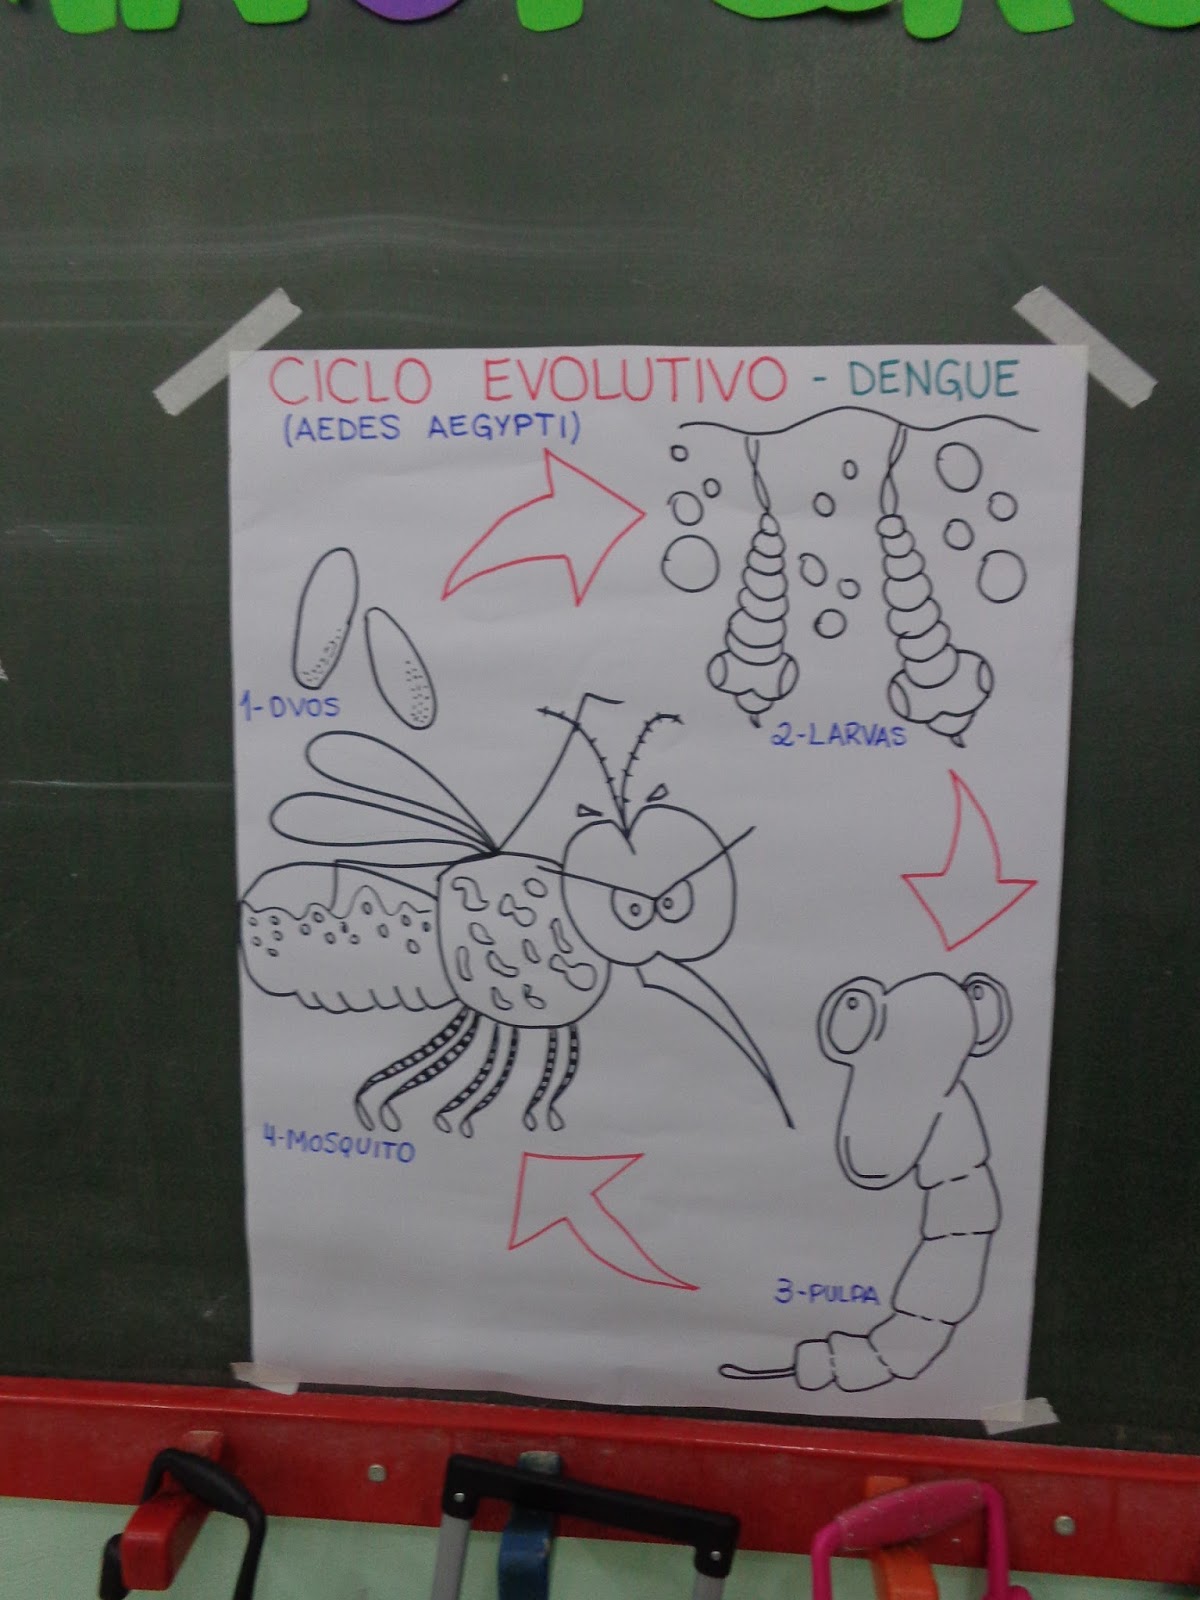 CICLO EVOLUTIVO - DENGUE
(AEDES AEGYPTI)
1-OVOS
2-LARVAS
4-MOSQUITO
3-PULPA